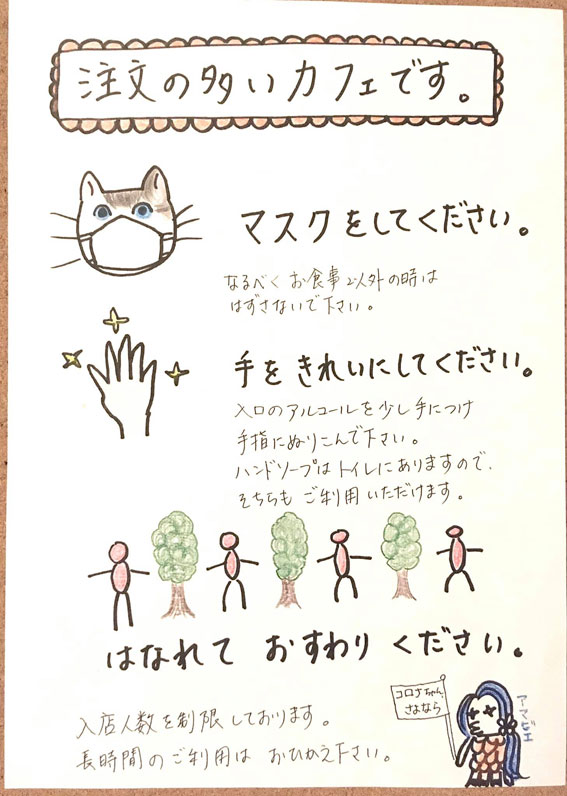 注文の多いカフェです。
マスクをしてください。
なるべく お食事以外の時は
はずさないで下さい。
手をきれいにしてください。
入口のアルコールを少し手につけ
手指にぬりこんで下さい。
ハンドソープはトイレにありますので、
そちらも ご利用いただけます。
はなれて おすわり ください。
コロナちゃん、
さよなら
アマビエ
入店人数を制限しております。
長時間のご利用は おひかえ下さい。